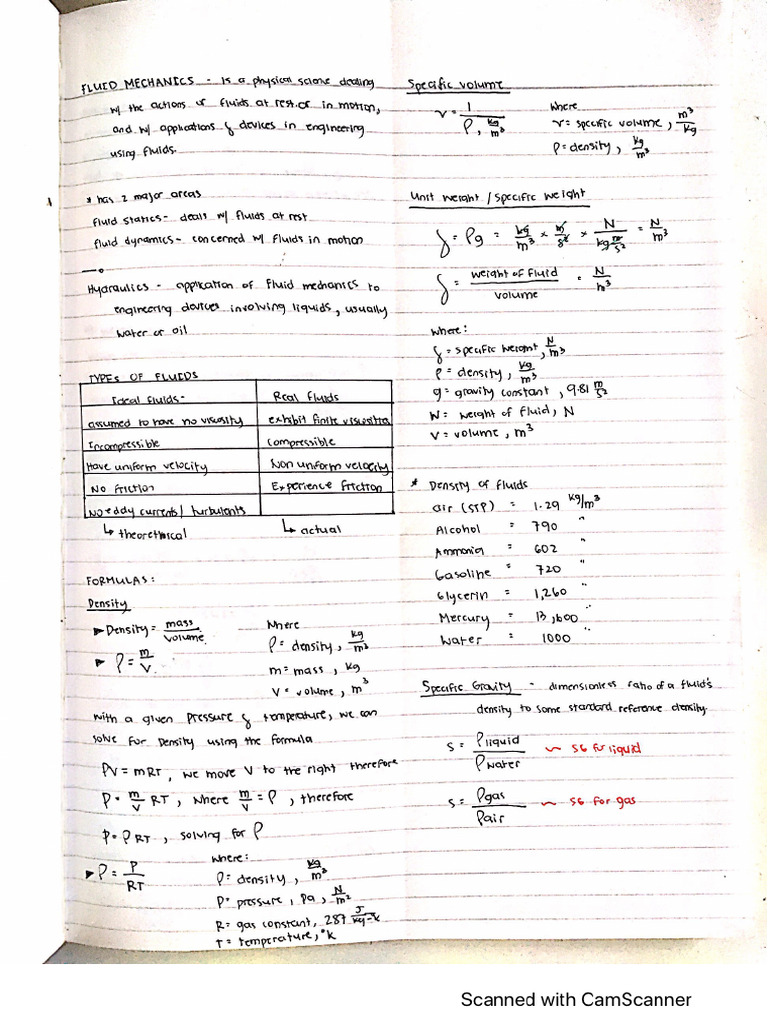 FLUID MECHANICS - is a physical science dealing
w/ the actions of fluids at rest or in motion,
and w/ applications & devices in engineering
using fluids.
* has 2 major areas
fluid statics - deals w/ fluids at rest
fluid dynamics - concerned w/ fluids in motion
Hydraulics - application of fluid mechanics to
engineering devices involving liquids, usually
water or oil
TYPES OF FLUIDS
Ideal fluids - Real fluids
assumed to have no viscosity exhibit finite viscosities
Incompressible compressible
Have uniform velocity Non uniform velocity
No friction Experience friction
No eddy currents/ turbulents
↳ theorethical ↳ actual
FORMULAS:
Density
► Density = mass/volume Where
ρ = density, kg/m³
► ρ = m/V m = mass, kg
V = volume, m³
with a given pressure & temperature, we can
solve for density using the formula
PV = mRT, we move V to the right therefore
P = m/V RT, where m/V = ρ, therefore
P = ρRT, solving for ρ
► ρ = P/RT where:
ρ = density, kg/m³
P = pressure, Pa, N/m²
R = gas constant, 287 J/kg-K
T = temperature, °K
Specific volume
v = 1/ρ, kg/m³ where
v = specific volume, m³/kg
ρ = density, kg/m³
Unit weight / specific weight
γ = ρg = kg/m³ × m/s² × N/kg m/s² = N/m³
γ = weight of fluid/volume = N/m³
where:
γ = specific weight, N/m³
ρ = density, kg/m³
g = gravity constant, 9.81 m/s²
W = weight of fluid, N
V = volume, m³
* Density of fluids
air (STP) = 1.29 kg/m³
Alcohol = 790 "
Ammonia = 602 "
Gasoline = 720 "
Glycerin = 1,260 "
Mercury = 13,600 "
Water = 1000 "
Specific Gravity - dimensionless ratio of a fluid's
density to some standard reference density
s = ρliquid/ρwater ~ SG for liquid
s = ρgas/ρair ~ SG for gas
Scanned with CamScanner